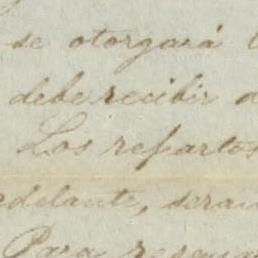 se otorgará
debe recibir
Los repartos
adelante, seran
Para